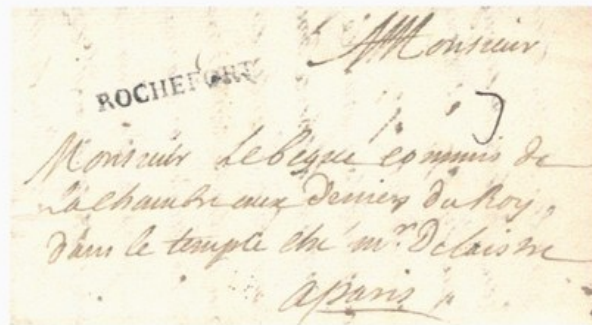 AMonsieur
ROCHEFORT
Monsieur Lebegue commis de
La Chambre aux Deniers du Roy,
dans le temple ché mr. Delaistre
aparis